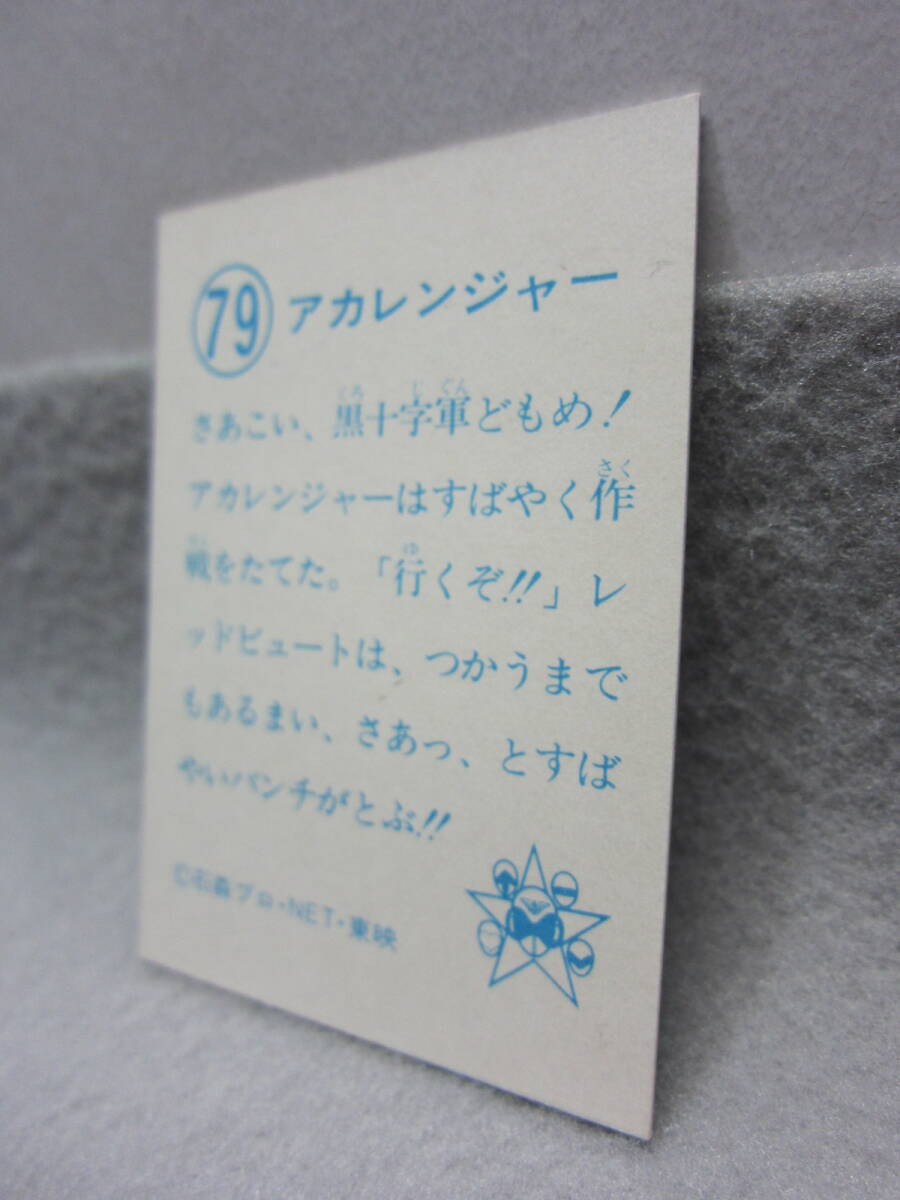 79 アカレンジャー
さあこい、黒十字軍どもめ！
アカレンジャーはすばやく作
戦をたてた。「行くぞ!!」レ
ッドビュートは、つかうまで
もあるまい、さあっ、とすば
やいパンチがとぶ!!
©石森プロ・NET・東映